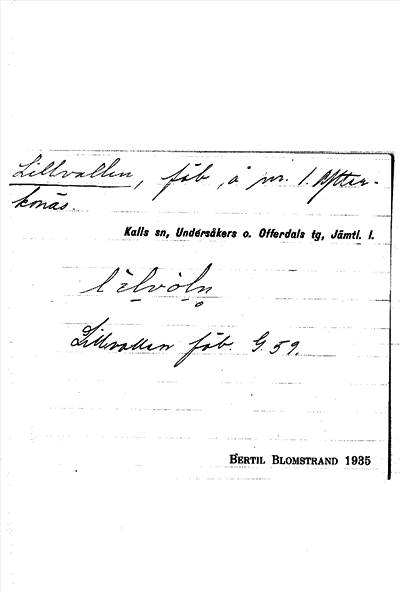 Lillvallen, fäb, å nr. 1. Äfter-
könäs.
Kalls sn, Undersåkers o. Offerdals tg, Jämtl. l.
Lillvallen fäb. G. 59.
BERTIL BLOMSTRAND 1935